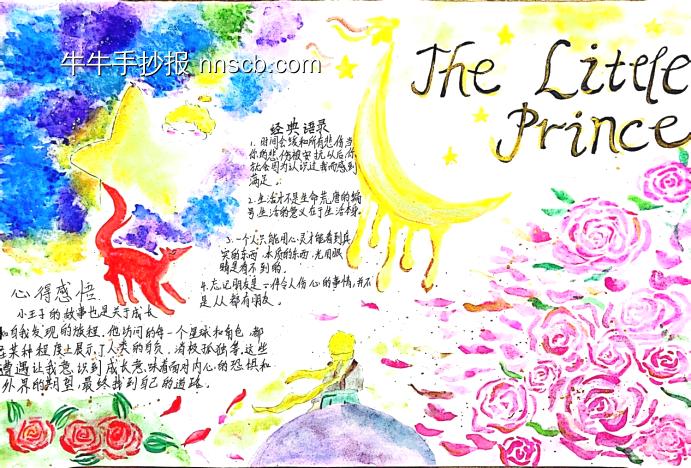 牛牛手抄报 nnscb.com
The Little
Prince
经典语录
1. 时间会缓和所有悲伤当
你的悲伤被安抚以后,你
就会因为认识过我而感到
满足。
2. 生活才不是生命荒唐的编
号,生活的意义在于生活本身。
3. 一个人只能用心灵才能看到真
实的东西,本质的东西,光用眼
睛是看不到的。
4. 忘记朋友是一件令人伤心的事情,并不
是人人都有朋友。
心得感悟
小王子的故事也是关于成长
和自我发现的旅程,他访问的每一个星球和角色,都
某种程度上展示了人类的自负,消极孤独等,这些
遭遇让我意识到成长意味着面对内心的恐惧和
外界的期望,最终找到自己的道路。